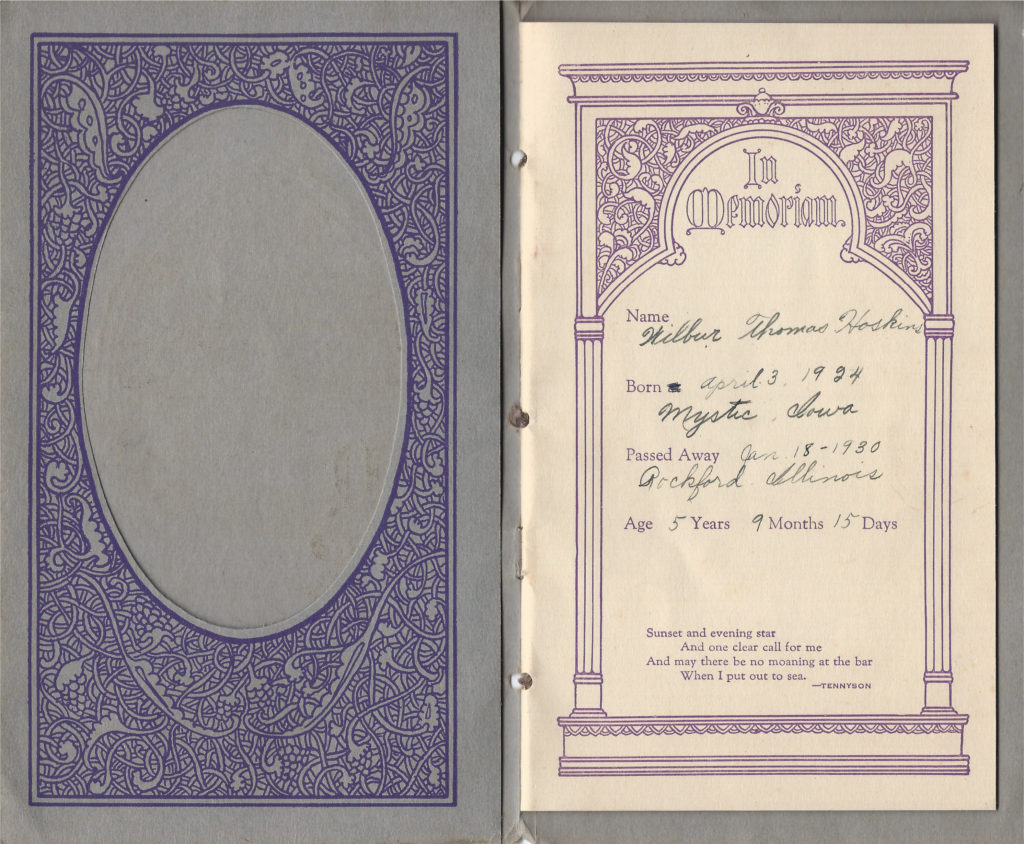 In
Memoriam
Name
Wilbur Thomas Hoskins
Born April 3, 1924
Mystic, Iowa
Passed Away Jan. 18-1930
Rockford Illinois
Age 5 Years 9 Months 15 Days
Sunset and evening star
And one clear call for me
And may there be no moaning at the bar
When I put out to sea.
—TENNYSON